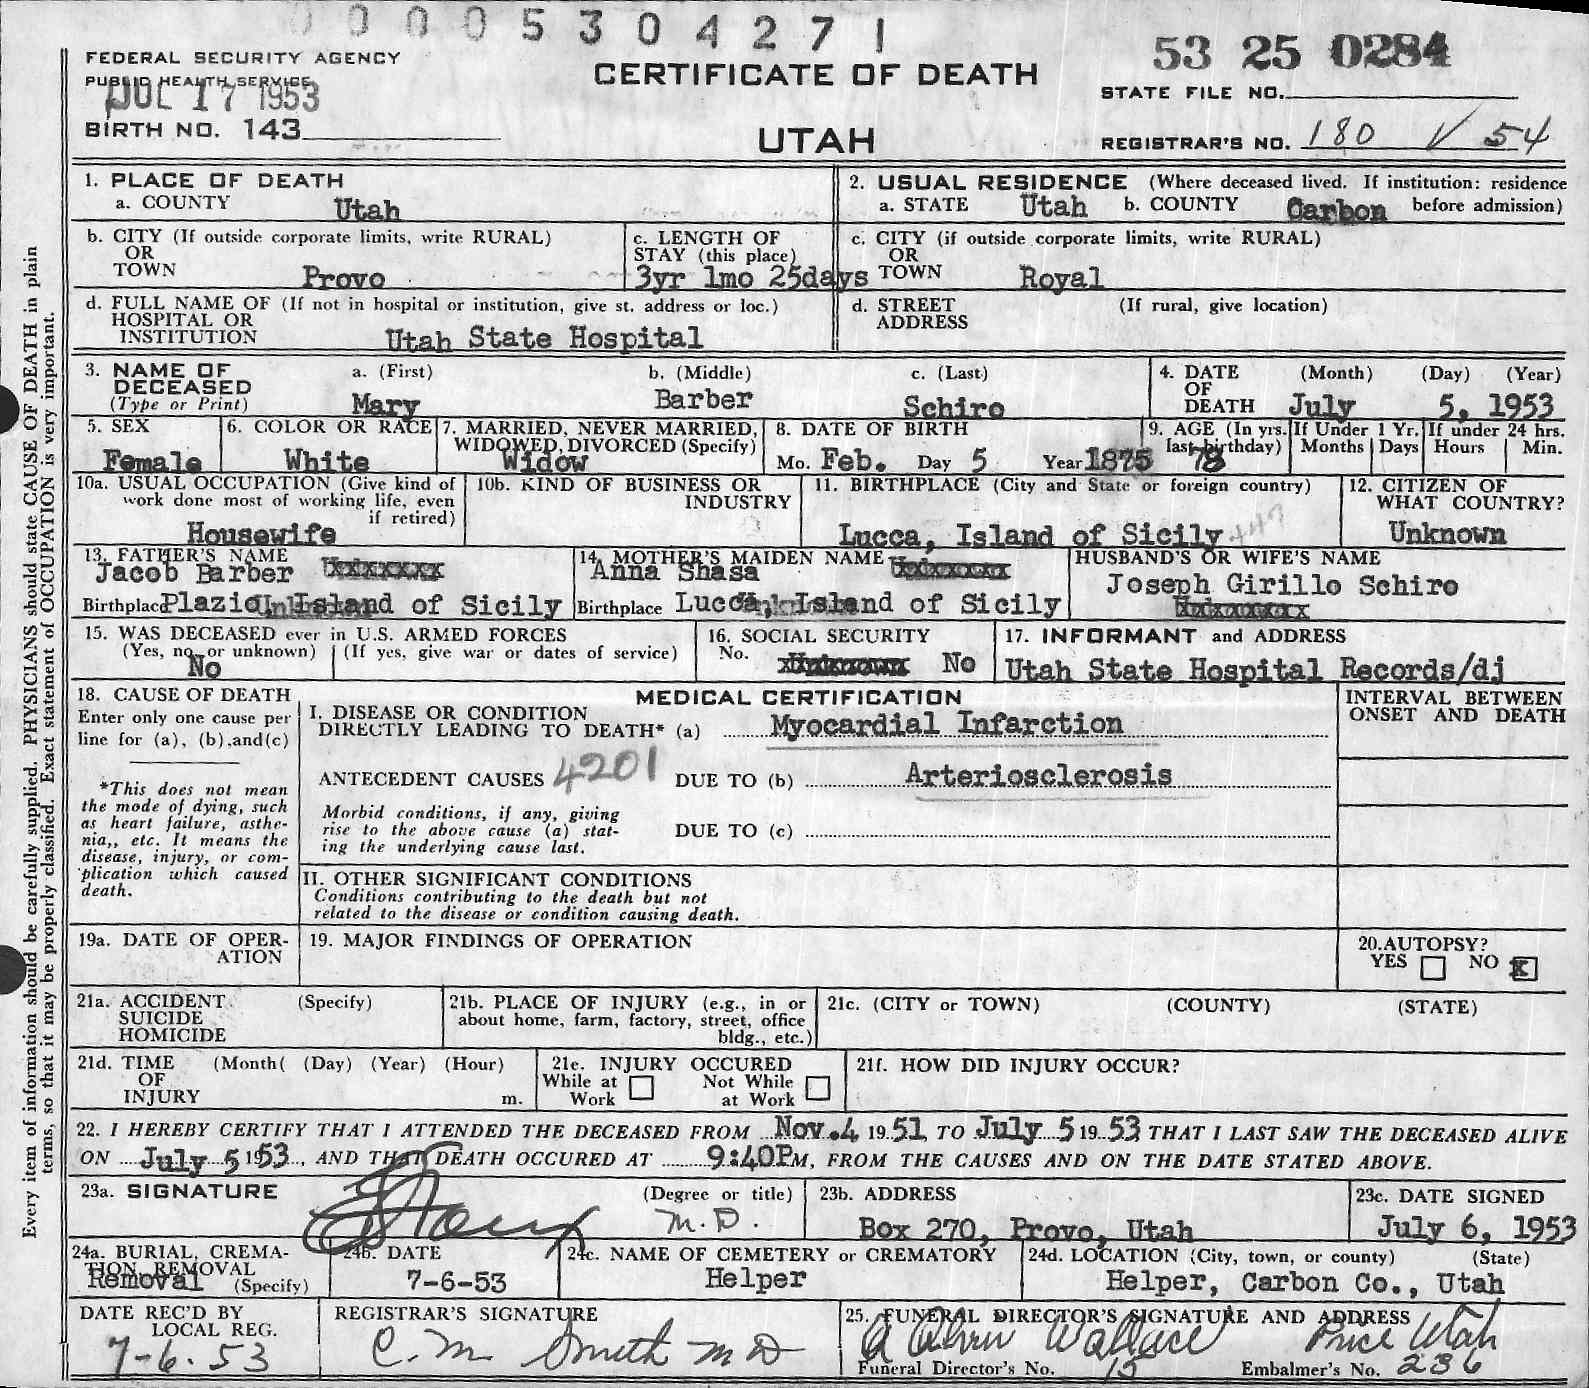 0 0 0 0 5 3 0 4 2 7 1
FEDERAL SECURITY AGENCY
PUBLIC HEALTH SERVICE
JUL 17 1953
BIRTH NO. 143
CERTIFICATE OF DEATH
UTAH
53 25 0284
STATE FILE NO.
REGISTRAR'S NO. 180 √ 54
Every item of information should be carefully supplied. PHYSICIANS should state CAUSE OF DEATH in plain
terms, so that it may be properly classified. Exact statement of OCCUPATION is very important.
1. PLACE OF DEATH
a. COUNTY Utah
2. USUAL RESIDENCE (Where deceased lived. If institution: residence
a. STATE Utah b. COUNTY Carbon before admission)
b. CITY (If outside corporate limits, write RURAL)
OR
TOWN Provo
c. LENGTH OF
STAY (this place)
3yr 1mo 25days
c. CITY (if outside corporate limits, write RURAL)
OR
TOWN Royal
d. FULL NAME OF (If not in hospital or institution, give st. address or loc.)
HOSPITAL OR
INSTITUTION Utah State Hospital
d. STREET (If rural, give location)
ADDRESS
3. NAME OF
DECEASED
(Type or Print)
a. (First)
Mary
b. (Middle)
Barber
c. (Last)
Schiro
4. DATE (Month) (Day) (Year)
OF
DEATH July 5, 1953
5. SEX
Female
6. COLOR OR RACE
White
7. MARRIED, NEVER MARRIED,
WIDOWED, DIVORCED (Specify)
Widow
8. DATE OF BIRTH
Mo. Feb. Day 5 Year 1875
9. AGE (In yrs.
last birthday)
78
If Under 1 Yr.
Months Days
If under 24 hrs.
Hours Min.
10a. USUAL OCCUPATION (Give kind of
work done most of working life, even
if retired)
Housewife
10b. KIND OF BUSINESS OR
INDUSTRY
11. BIRTHPLACE (City and State or foreign country)
Lucca, Island of Sicily 447
12. CITIZEN OF
WHAT COUNTRY?
Unknown
13. FATHER'S NAME
Jacob Barber
Birthplace Plazio, Island of Sicily
14. MOTHER'S MAIDEN NAME
Anna Shasa
Birthplace Lucca, Island of Sicily
HUSBAND'S OR WIFE'S NAME
Joseph Girillo Schiro
15. WAS DECEASED ever in U.S. ARMED FORCES
(Yes, no, or unknown) (If yes, give war or dates of service)
No
16. SOCIAL SECURITY
No. No
17. INFORMANT and ADDRESS
Utah State Hospital Records/dj
18. CAUSE OF DEATH
Enter only one cause per
line for (a), (b),and(c)
*This does not mean
the mode of dying, such
as heart failure, asthe-
nia,, etc. It means the
disease, injury, or com-
plication which caused
death.
MEDICAL CERTIFICATION
I. DISEASE OR CONDITION
DIRECTLY LEADING TO DEATH* (a) Myocardial Infarction
ANTECEDENT CAUSES 4201 DUE TO (b) Arteriosclerosis
Morbid conditions, if any, giving
rise to the above cause (a) stat-
ing the underlying cause last.
DUE TO (c)
INTERVAL BETWEEN
ONSET AND DEATH
II. OTHER SIGNIFICANT CONDITIONS
Conditions contributing to the death but not
related to the disease or condition causing death.
19a. DATE OF OPER-
ATION
19. MAJOR FINDINGS OF OPERATION
20.AUTOPSY?
YES NO X
21a. ACCIDENT (Specify)
SUICIDE
HOMICIDE
21b. PLACE OF INJURY (e.g., in or
about home, farm, factory, street, office
bldg., etc.)
21c. (CITY or TOWN) (COUNTY) (STATE)
21d. TIME (Month( (Day) (Year) (Hour)
OF
INJURY m.
21e. INJURY OCCURED
While at Not While
Work at Work
21f. HOW DID INJURY OCCUR?
22. I HEREBY CERTIFY THAT I ATTENDED THE DECEASED FROM Nov. 4 19 51 TO July 5 19 53 THAT I LAST SAW THE DECEASED ALIVE
ON July 5 1953, AND THAT DEATH OCCURED AT 9:40PM, FROM THE CAUSES AND ON THE DATE STATED ABOVE.
23a. SIGNATURE (Degree or title)
M.D.
23b. ADDRESS
Box 270, Provo, Utah
23c. DATE SIGNED
July 6, 1953
24a. BURIAL, CREMA-
TION, REMOVAL
Removal (Specify)
24b. DATE
7-6-53
24c. NAME OF CEMETERY or CREMATORY
Helper
24d. LOCATION (City, town, or county) (State)
Helper, Carbon Co., Utah
DATE REC'D BY
LOCAL REG.
7-6-53
REGISTRAR'S SIGNATURE
C. M. Smith M D
25. FUNERAL DIRECTOR'S SIGNATURE AND ADDRESS
Wallace Price Utah
Funeral Director's No. 15 Embalmer's No. 236